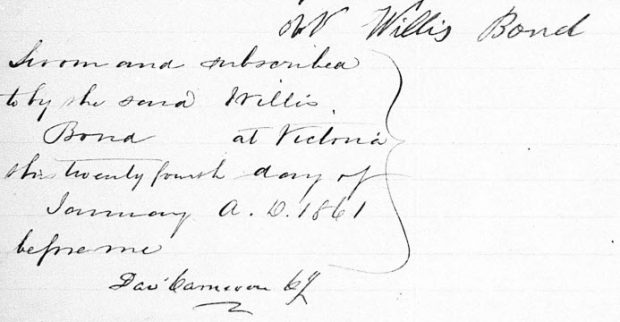 Willis Bond
Sworn and subscribed
to by the said Willis
Bond at Victoria
the twenty fourth day of
January A.D. 1861
before me
Dav' Cameron CJ